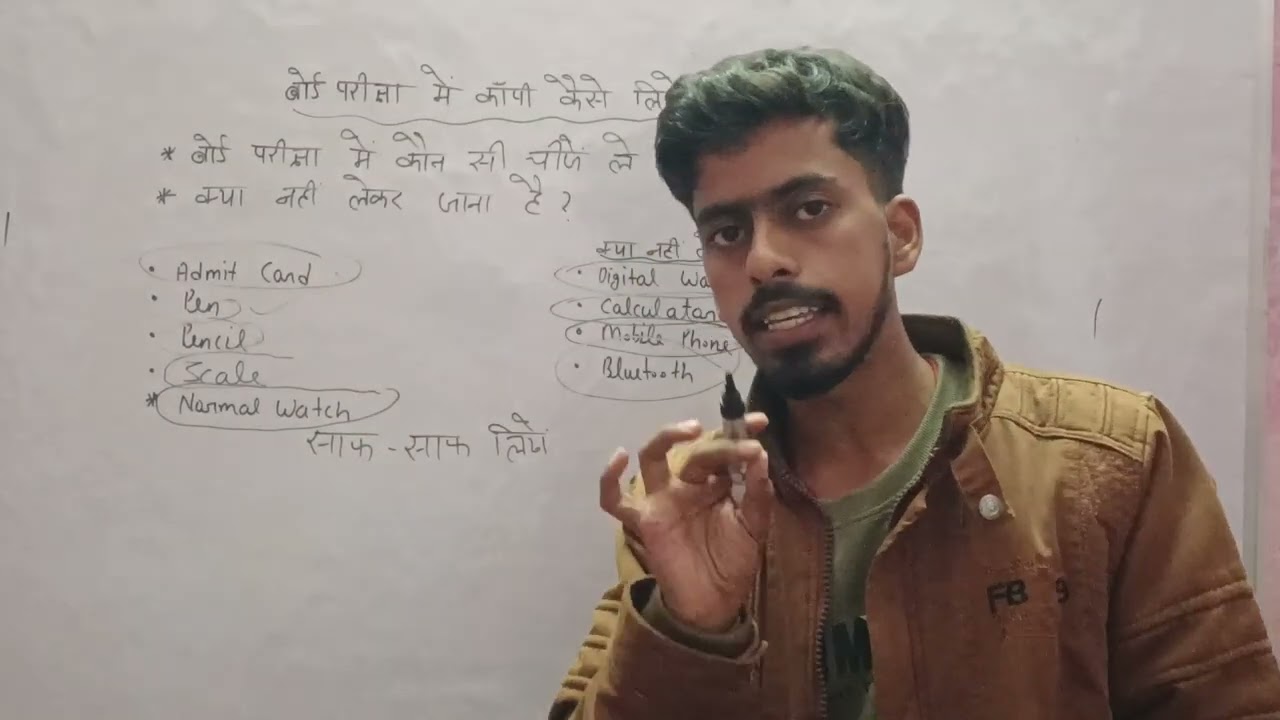 बोर्ड परीक्षा में कॉपी कैसे लिखे
* बोर्ड परीक्षा में कौन सी चीजें ले
* क्या नहीं लेकर जाना है ?
• Admit Card
• Pen
• Pencil
• Scale
* Normal Watch
क्या नहीं
• Digital Wa
• Calculator
• Mobile Phone
• Bluetooth
साफ - साफ लिखें
FB 9